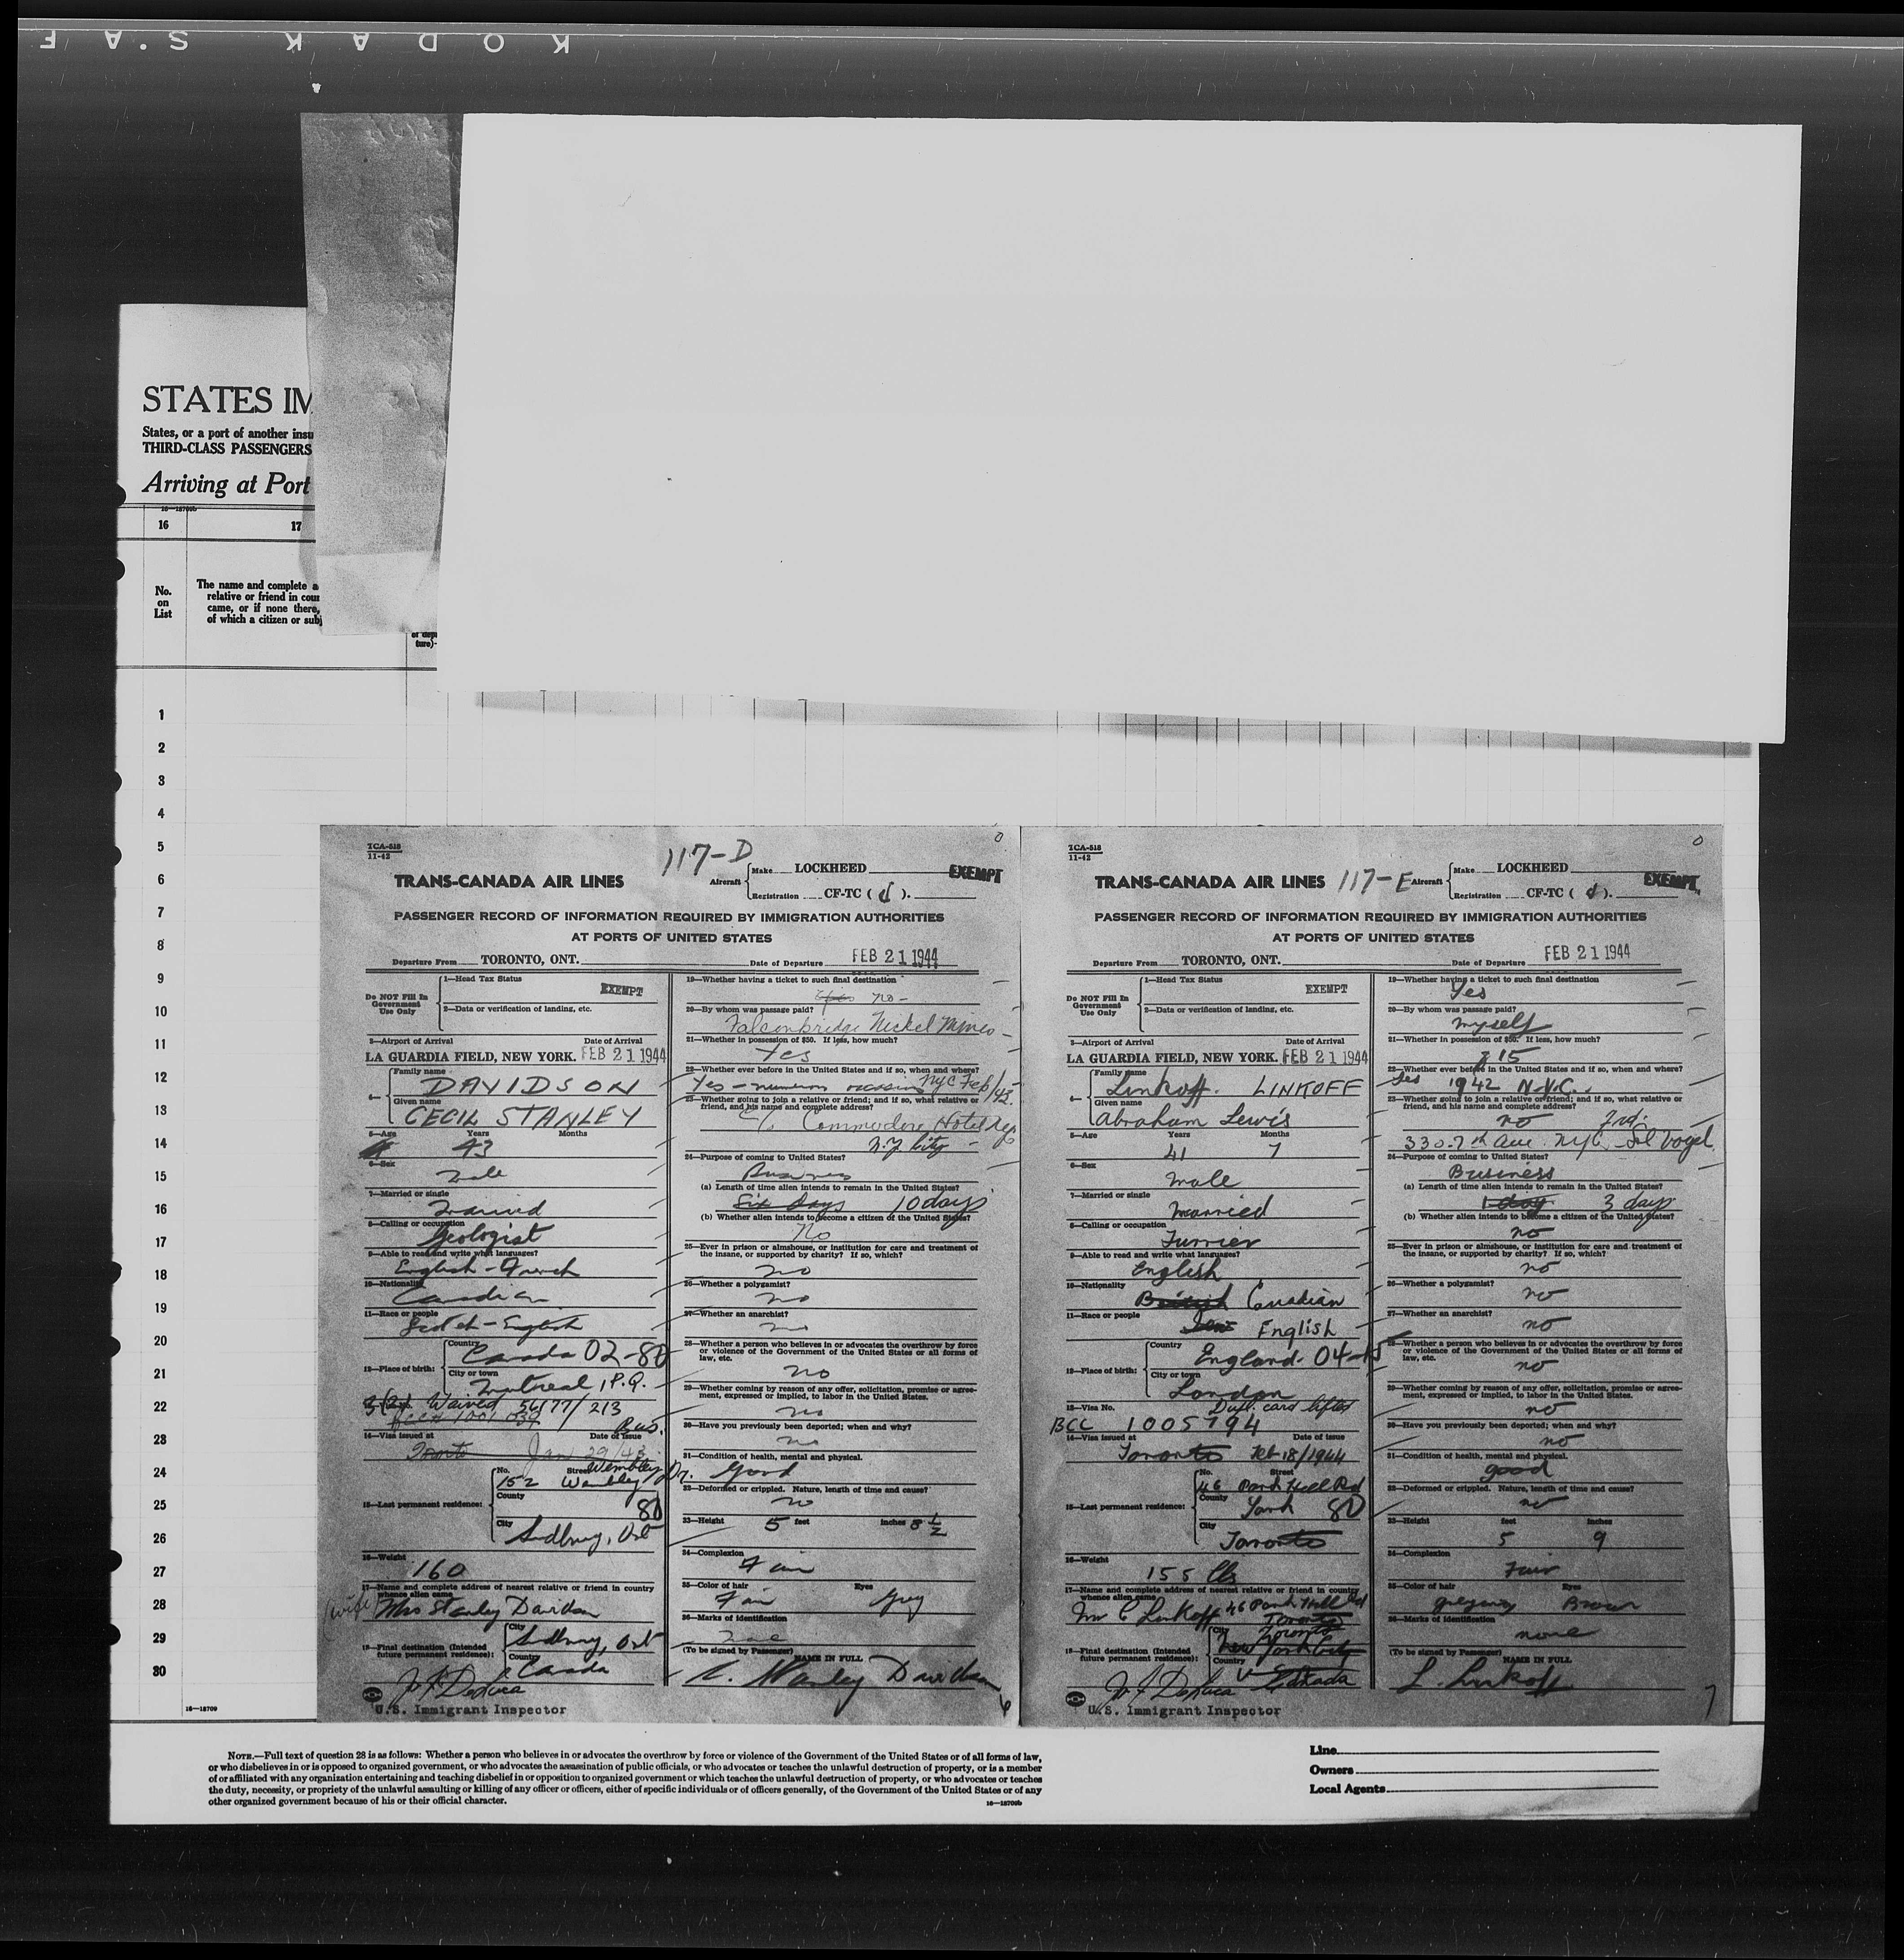 KODAK S.A F
STATES IM
States, or a port of another insu
THIRD-CLASS PASSENGERS
Arriving at Port
16—18709b
16 17
No. on List
The name and complete a
relative or friend in coun
came, or if none there,
of which a citizen or subj
of depa
ture)-
1
2
3
4
5
6
7
8
9
10
11
12
13
14
15
16
17
18
19
20
21
22
23
24
25
26
27
28
29
30
16—18709
TCA-518
11-42
117-D
TRANS-CANADA AIR LINES
Aircraft
Make LOCKHEED
EXEMPT
Registration CF-TC ( d ).
PASSENGER RECORD OF INFORMATION REQUIRED BY IMMIGRATION AUTHORITIES
AT PORTS OF UNITED STATES
Departure From TORONTO, ONT. Date of Departure FEB 21 1944
Do NOT Fill In Government Use Only
1—Head Tax Status
EXEMPT
2—Data or verification of landing, etc.
3—Airport of Arrival Date of Arrival
LA GUARDIA FIELD, NEW YORK. FEB 21 1944
4—
Family name
DAVIDSON
Given name
CECIL STANLEY
5—Age Years Months
43
6—Sex
Male
7—Married or single
Married
8—Calling or occupation
Geologist
9—Able to read and write what languages?
English - French
10—Nationality
Canadian
11—Race or people
Scotch - English
12—Place of birth:
Country
Canada 02-80
City or town
Montreal, P.Q.
Waived 56/77/213
Bus.
14—Visa issued at Date of Issue
Toronto Jan 29/43
15—Last permanent residence:
No. Street Wembley Dr.
152 Wembley
County
80
City
Sudbury, Ont
16—Weight
160
17—Name and complete address of nearest relative or friend in country
whence alien came
(wife) Mrs Stanley Davidson
18—Final destination (Intended
future permanent residence):
City
Sudbury, Ont
Country
Canada
U.S. Immigrant Inspector
19—Whether having a ticket to such final destination
yes no -
20—By whom was passage paid?
Falconbridge Nickel Mines
21—Whether in possession of $50. If less, how much?
Yes
22—Whether ever before in the United States and if so, when and where?
Yes - numerous occasions NYC Feb/43.
23—Whether going to join a relative or friend; and if so, what relative or
friend, and his name and complete address?
c/o Commodore Hotel
N.Y. City
24—Purpose of coming to United States?
Business
(a) Length of time alien intends to remain in the United States?
Six days 10 days
(b) Whether alien intends to become a citizen of the United States?
No
25—Ever in prison or almshouse, or institution for care and treatment of
the insane, or supported by charity? If so, which?
no
26—Whether a polygamist?
no
27—Whether an anarchist?
no
28—Whether a person who believes in or advocates the overthrow by force
or violence of the Government of the United States or all forms of
law, etc.
no
29—Whether coming by reason of any offer, solicitation, promise or agree-
ment, expressed or implied, to labor in the United States.
no
30—Have you previously been deported; when and why?
no
31—Condition of health, mental and physical.
Good
32—Deformed or crippled. Nature, length of time and cause?
no
33—Height 5 feet inches 8 1/2
34—Complexion
Fair
35—Color of hair Eyes
Fair Grey
36—Marks of identification
(To be signed by Passenger)
NAME IN FULL
C. Stanley Davidson
6
TCA-518
11-42
TRANS-CANADA AIR LINES 117-E
Aircraft
Make LOCKHEED
EXEMPT
Registration CF-TC ( d ).
PASSENGER RECORD OF INFORMATION REQUIRED BY IMMIGRATION AUTHORITIES
AT PORTS OF UNITED STATES
Departure From TORONTO, ONT. Date of Departure FEB 21 1944
Do NOT Fill In Government Use Only
1—Head Tax Status
EXEMPT
2—Data or verification of landing, etc.
3—Airport of Arrival Date of Arrival
LA GUARDIA FIELD, NEW YORK. FEB 21 1944
4—
Family name
Linkoff. LINKOFF
Given name
Abraham Lewis
5—Age Years Months
41 7
6—Sex
male
7—Married or single
married
8—Calling or occupation
Furrier
9—Able to read and write what languages?
English
10—Nationality
British Canadian
11—Race or people
English
12—Place of birth:
Country
England. 04-15
City or town
London
13—Visa No. Dupl. card lifted
BCC 1005794
14—Visa issued at Date of issue
Toronto Feb 18/1944
15—Last permanent residence:
No. Street
46 Park Hill Rd
County
York 80
City
Toronto
16—Weight
155 lbs
17—Name and complete address of nearest relative or friend in country
whence alien came
46 Park Hill Rd
Linkoff Toronto
18—Final destination (Intended
future permanent residence):
City
Toronto
New York City
Country
Canada
U.S. Immigrant Inspector
19—Whether having a ticket to such final destination
Yes
20—By whom was passage paid?
myself
21—Whether in possession of $50. If less, how much?
$15
22—Whether ever before in the United States and if so, when and where?
Yes 1942 N.Y.C.
23—Whether going to join a relative or friend; and if so, what relative or
friend, and his name and complete address?
no
330.7th Ave. NYC - Sol Vogel
24—Purpose of coming to United States?
Business
(a) Length of time alien intends to remain in the United States?
1 day 3 days
(b) Whether alien intends to become a citizen of the United States?
no
25—Ever in prison or almshouse, or institution for care and treatment of
the insane, or supported by charity? If so, which?
no
26—Whether a polygamist?
no
27—Whether an anarchist?
no
28—Whether a person who believes in or advocates the overthrow by force
or violence of the Government of the United States or all forms of
law, etc.
no
29—Whether coming by reason of any offer, solicitation, promise or agree-
ment, expressed or implied, to labor in the United States.
no
30—Have you previously been deported; when and why?
no
31—Condition of health, mental and physical.
good
32—Deformed or crippled. Nature, length of time and cause?
no
33—Height feet inches
5 9
34—Complexion
Fair
35—Color of hair Eyes
Brown
36—Marks of identification
none
(To be signed by Passenger)
NAME IN FULL
L. Linkoff
7
NOTE.—Full text of question 28 is as follows: Whether a person who believes in or advocates the overthrow by force or violence of the Government of the United States or of all forms of law,
or who disbelieves in or is opposed to organized government, or who advocates the assassination of public officials, or who advocates or teaches the unlawful destruction of property, or is a member
of or affiliated with any organization entertaining and teaching disbelief in or opposition to organized government or which teaches the unlawful destruction of property, or who advocates or teaches
the duty, necessity, or propriety of the unlawful assaulting or killing of any officer or officers, either of specific individuals or of officers generally, of the Government of the United States or of any
other organized government because of his or their official character.
16—18709b
Line
Owners
Local Agents